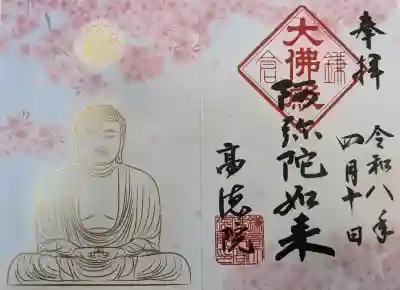 奉拝
令和八年
四月十日
大佛殿
鎌倉
阿弥陀如来
高徳院